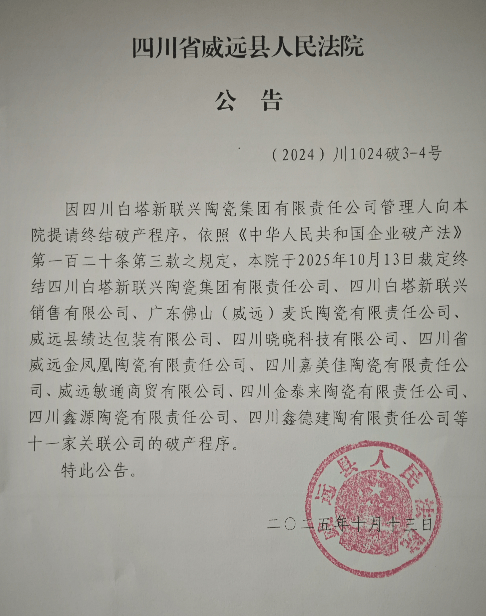 四川省威远县人民法院
公 告
（2024）川1024破3-4号
因四川白塔新联兴陶瓷集团有限责任公司管理人向本
院提请终结破产程序，依照《中华人民共和国企业破产法》
第一百二十条第三款之规定，本院于2025年10月13日裁定终
结四川白塔新联兴陶瓷集团有限责任公司、四川白塔新联兴
销售有限公司、广东佛山（威远）麦氏陶瓷有限责任公司、
威远县绩达包装有限公司、四川晓晓科技有限公司、四川省
威远金凤凰陶瓷有限责任公司、四川嘉美佳陶瓷有限责任公
司、威远敏通商贸有限公司、四川金泰来陶瓷有限责任公司、
四川鑫源陶瓷有限责任公司、四川鑫德建陶有限责任公司等
十一家关联公司的破产程序。
特此公告。
二〇二五年十月十三日
威远县人民法院